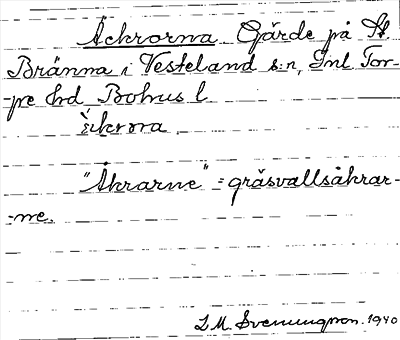 Åckrorna Gärde på St.
Bränna i Vesteland s:n, Inl Tor-
-pe hd Bohus l.
"Åkrarne" = gräsvallsåkrar-
-ne.
L M Svenungsson. 1940